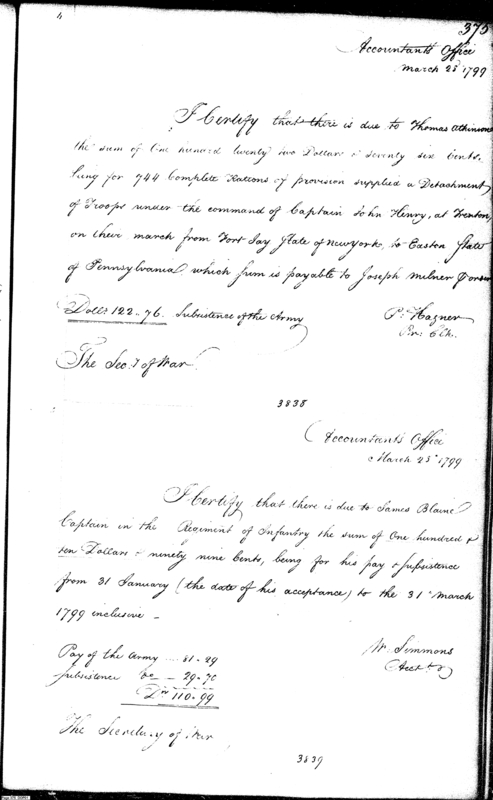 375
Accountants Office
March 23d 1799
I Certify that there is due to Thomas Atkinson
the sum of One hundred twenty two Dollars & seventy six Cents.
being for 744 Complete Rations of provision supplied a Detachment
of Troops under the command of Captain John Henry, at Trenton,
on their march from Fort Jay State of New York, to Easton State
of Pennsylvania which sum is payable to Joseph Milnor
Dolls 122.76. Subsistence of the Army
P. Hagner
Pr: Clk.
The Secy of War
3838
Accountants Office
March 23d 1799
I Certify that there is due to James Blaine
Captain in the Regiment of Infantry the sum of One hundred &
ten Dollars & ninety nine Cents, being for his pay & subsistence
from 31 January (the date of his acceptance) to the 31 March
1799 inclusive -
Pay of the Army .... 81.29
Subsistence Do — 29.70
Drs 110.99
W. Simmons
Acct.
The Secretary of War
3839